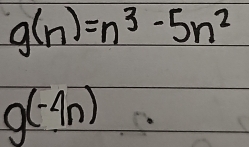 g(n)=n³-5n²
g(-4n)